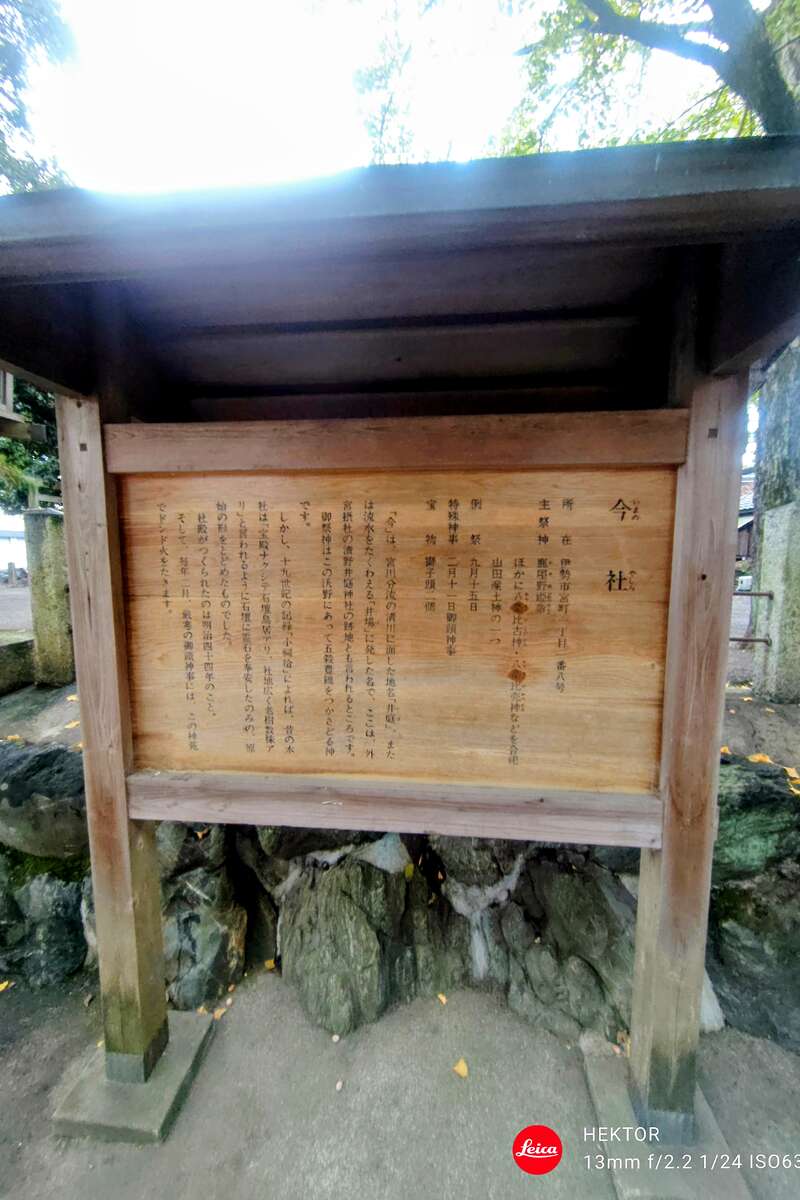 今社
いまの やしろ
所在 伊勢市宮町一丁目 番八号
主祭神 鹿屋野姫命
ほかに八 比古神・八 比売神などを合祀
山田産土神の一つ
例祭 九月十五日
特殊神事 二月十一日御頭神事
宝物 獅子頭一個
「今」は、宮川分流の清川に面した地名「井庭」、また
は流水をたくわえる「井場」に発した名で、ここは、外
宮摂社の清野井庭神社の跡地とも言われるところです。
御祭神はこの沃野にあって五穀豊饒をつかさどる神
です。
しかし、十九世紀の記録「小祠拾」によれば、昔の本
社は「宝殿ナクシテ石壇鳥居アリ、社地広く老樹数株ア
リ」と言われるように石壇に霊石を奉安したのみの、原
始の形をとどめたものでした。
社殿がつくられたのは明治四十四年のこと。
そして、毎年二月、厳寒の御頭神事には、この神苑
でドンド火をたきます。
Leica
HEKTOR
13mm f/2.2 1/24 ISO63